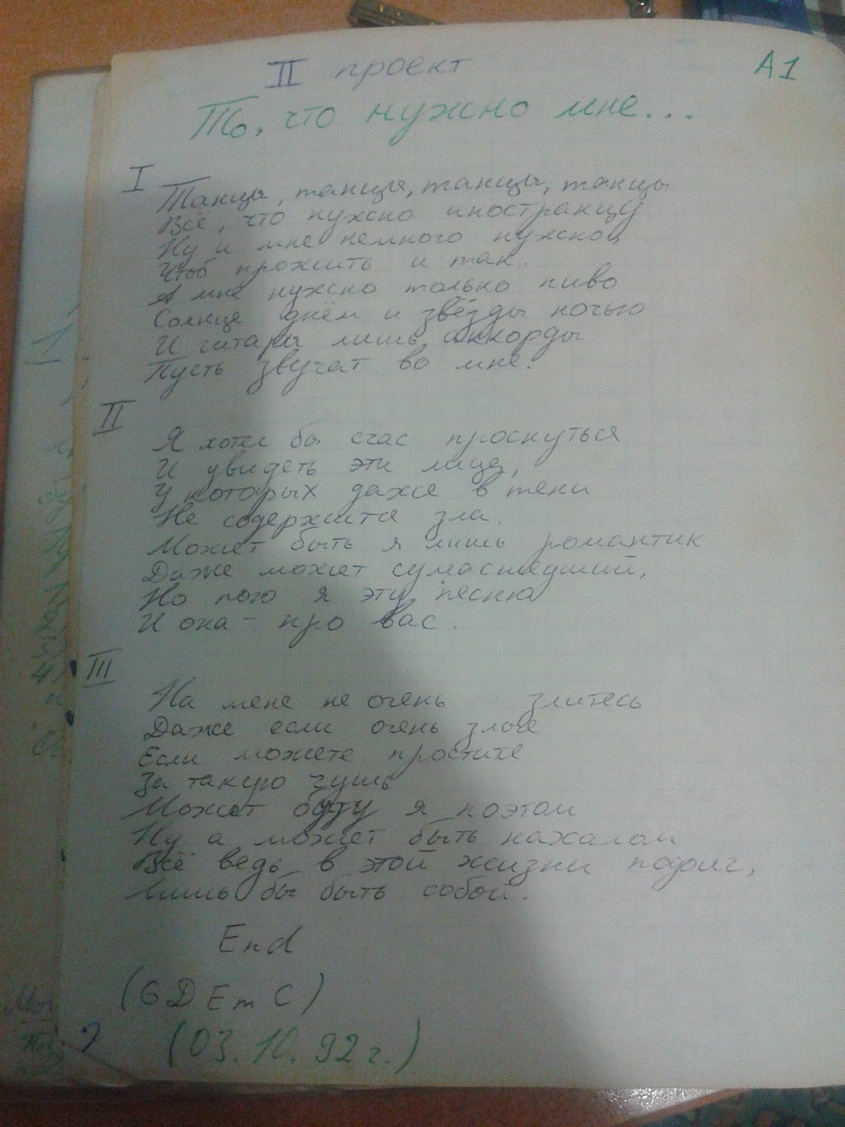 II проект
A1
То, что нужно мне...
I
Танцы, танцы, танцы, танцы
Всё, что нужно иностранцу
Ну и мне немного нужно,
Чтоб прожить и так.
А мне нужно только пиво
Солнце днём и звёзды ночью
И гитары лишь аккорды
Пусть звучат во мне.
II
Я хотел бы счас проснуться
И увидеть эти лица,
У которых даже в тени
Не содержится зла.
Может быть я лишь романтик
Даже может сумасшедший,
Но пою я эту песню
И она - про вас.
III
На меня не очень злитесь
Даже если очень злые
Если можете простите
За такую чушь
Может буду я поэтом
Ну а может быть нахалом
Всё ведь в этой жизни
Лишь бы быть собой.
End
(G D Em C)
(03.10.92 г.)